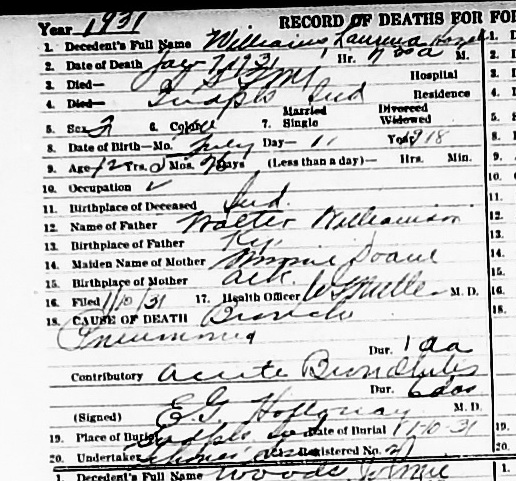 Year 1931 RECORD OF DEATHS FOR FO
1. Decedent's Full Name Williams, Laurena 1. D
2. Date of Death Jan 7 1931 Hr. M. 2. D
3. Died— Hospital 3. D
4. Died— Indpls Ind Residence 4. D
Married Divorced
5. Sex F 6. Color 7. Single Widowed 5. S
8. Date of Birth—Mo. July Day— 11 Year 1918 8. D
9. Age 12 Yrs. 5 Mos. Days (Less than a day)— Hrs. Min. 9. A
10. Occupation ✓ 10. O
11. Birthplace of Deceased Ind. 11.
12. Name of Father Walter Williamson 12.
13. Birthplace of Father Ky. 13.
14. Maiden Name of Mother Minnie Doane 14.
15. Birthplace of Mother Ark. 15.
16. Filed 1/10/31 17. Health Officer M. D. 16.
18. CAUSE OF DEATH Broncho 18.
Pneumonia
Dur. 1 da
Contributory Acute Bronchitis
Dur. 6 das
(Signed) E. G. M. D.
19. Place of Burial Indpls Ind Date of Burial 1-10-31 19.
20. Undertaker Registered No. 20.
1. Decedent's Full Name Woods 1.